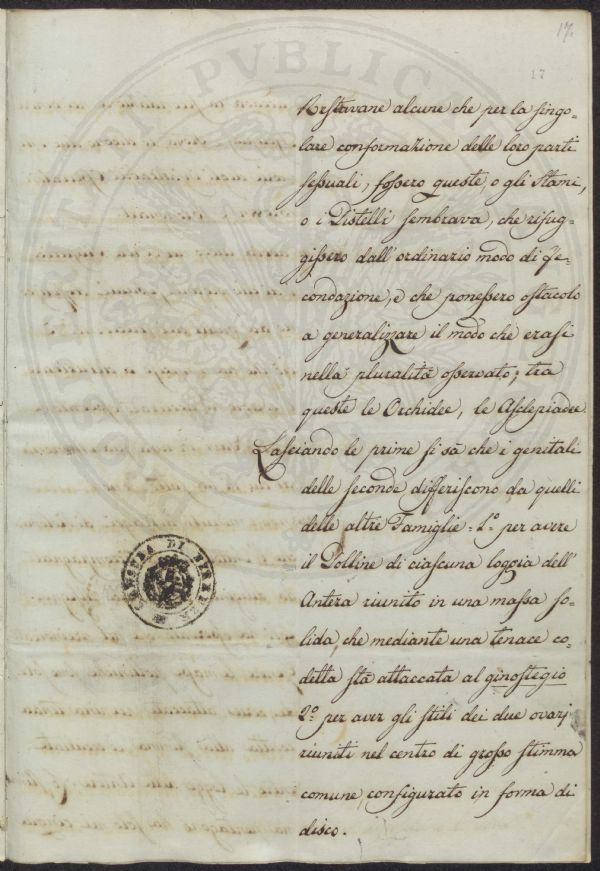 17.
17
Restavane alcune che per la singo-
lare conformazione delle loro parti
sessuali, fossero queste, o gli Stami,
o i Pistelli sembrava, che rifug-
gissero dall'ordinario modo di fe-
condazione, e che ponessero ostacolo
a generalizzare il modo che erasi
nella pluralità osservato; tra
queste le Orchidee, le Asclepiadee
Lasciando le prime si sà che i genitali
delle seconde differiscono da quelli
delle altre Famiglie = 1.º per avere
il Polline di ciascuna loggia dell'
Antera riunito in una massa so-
lida, che mediante una tenace co-
detta stà attaccata al ginostegio
2.º per aver gli stili dei due ovarj
riuniti nel centro di grosso stimma
comune, configurato in forma di
disco.